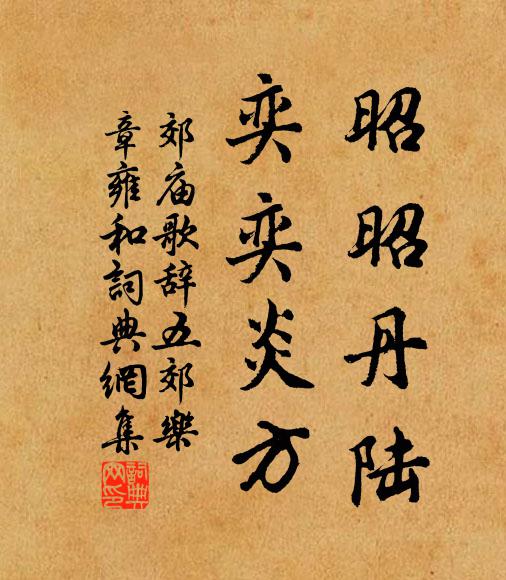 昭昭丹陆
奕奕炎方
郊庙歌辞五郊樂
章雍和詞典網集
詞典
网印